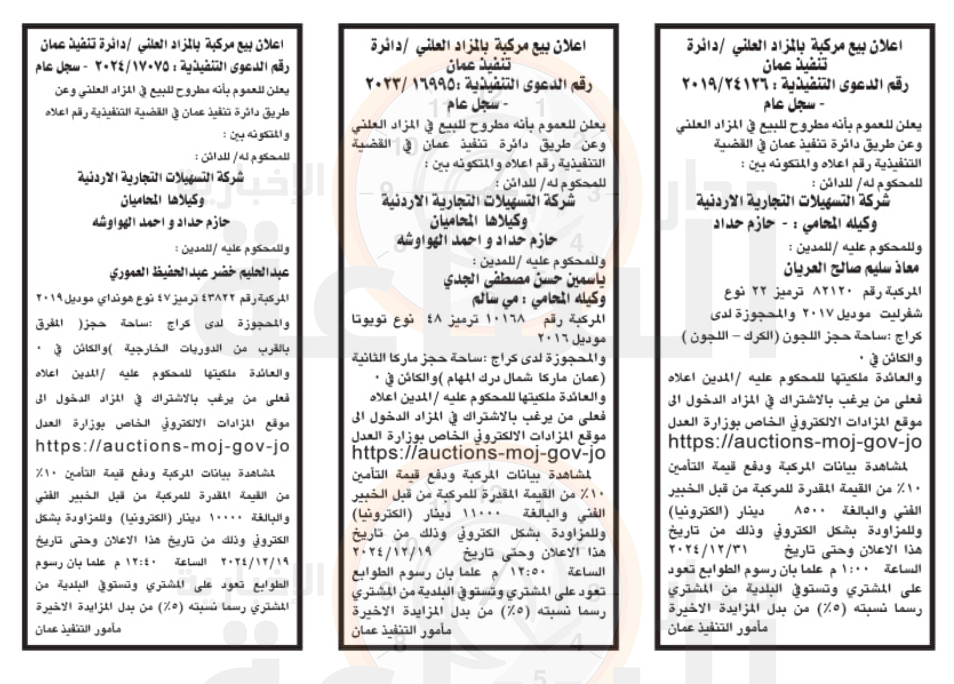 اعلان بيع مركبة بالمزاد العلني /دائرة
تنفيذ عمان
رقم الدعوى التنفيذية : ٢٠١٩/٢٤١٢٦
- سجل عام
يعلن للعموم بأنه مطروح للبيع في المزاد العلني
وعن طريق دائرة تنفيذ عمان في القضية
التنفيذية رقم اعلاه و المتكونه بين :
للمحكوم له/ للدائن :
شركة التسهيلات التجارية الاردنية
وكيله المحامي : - حازم حداد
وللمحكوم عليه /للمدين :
معاذ سليم صالح العريان
المركبة رقم ٨٢١٢٠ ترميز ٢٢ نوع
شفرليت موديل ٢٠١٧ والمحجوزة لدى
كراج :ساحة حجز اللجون (الكرك – اللجون )
والكائن في ٠
والعائدة ملكيتها للمحكوم عليه /المدين اعلاه
فعلى من يرغب بالاشتراك في المزاد الدخول الى
موقع المزادات الالكتروني الخاص بوزارة العدل
https://auctions-moj-gov-jo
لمشاهدة بيانات المركبة ودفع قيمة التأمين
١٠٪ من القيمة المقدرة للمركبة من قبل الخبير
الفني والبالغة ٨٥٠٠ دينار (الكترونيا)
وللمزاودة بشكل الكتروني وذلك من تاريخ
هذا الاعلان وحتى تاريخ ٢٠٢٤/١٢/٣١
الساعة ١:٠٠ م علما بان رسوم الطوابع تعود
على المشتري وتستوفى البلدية من المشتري
رسما نسبته (٥٪) من بدل المزايدة الاخيرة
مأمور التنفيذ عمان
اعلان بيع مركبة بالمزاد العلني /دائرة
تنفيذ عمان
رقم الدعوى التنفيذية :١٦٩٩٥ /٢٠٢٣
- سجل عام
يعلن للعموم بأنه مطروح للبيع في المزاد العلني
وعن طريق دائرة تنفيذ عمان في القضية
التنفيذية رقم اعلاه و المتكونه بين :
للمحكوم له/ للدائن :
شركة التسهيلات التجارية الاردنية
وكيلاها المحاميان
حازم حداد و احمد الهواوشه
وللمحكوم عليه /للمدين :
ياسمين حسن مصطفى الجدي
وكيله المحامي : مي سالم
المركبة رقم ١٠١٦٨ ترميز ٤٨ نوع تويوتا
موديل ٢٠١٦
والمحجوزة لدى كراج :ساحة حجز ماركا الثانية
(عمان ماركا شمال درك المهام )والكائن في ٠
والعائدة ملكيتها للمحكوم عليه /المدين اعلاه
فعلى من يرغب بالاشتراك في المزاد الدخول الى
موقع المزادات الالكتروني الخاص بوزارة العدل
https://auctions-moj-gov-jo
لمشاهدة بيانات المركبة ودفع قيمة التأمين
١٠٪ من القيمة المقدرة للمركبة من قبل الخبير
الفني والبالغة ١١٠٠٠ دينار (الكترونيا)
وللمزاودة بشكل الكتروني وذلك من تاريخ
هذا الاعلان وحتى تاريخ ٢٠٢٤/١٢/١٩
الساعة ١٢:٥٠ م علما بان رسوم الطوابع
تعود على المشتري وتستوفى البلدية من المشتري
رسما نسبته (٥٪) من بدل المزايدة الاخيرة
مأمور التنفيذ عمان
اعلان بيع مركبة بالمزاد العلني /دائرة تنفيذ عمان
رقم الدعوى التنفيذية : ٢٠٢٤/١٧٠٧٥ - سجل عام
يعلن للعموم بأنه مطروح للبيع في المزاد العلني وعن
طريق دائرة تنفيذ عمان في القضية التنفيذية رقم اعلاه
و المتكونه بين :
للمحكوم له/ للدائن :
شركة التسهيلات التجارية الاردنية
وكيلاها المحاميان
حازم حداد و احمد الهواوشه
وللمحكوم عليه /للمدين :
عبدالحليم خضر عبدالحفيظ العموري
المركبة رقم ٤٣٨٢٢ ترميز ٤٧ نوع هونداي موديل ٢٠١٩
والمحجوزة لدى كراج :ساحة حجز( المفرق
بالقرب من الدوريات الخارجية )والكائن في ٠
والعائدة ملكيتها للمحكوم عليه /المدين اعلاه
فعلى من يرغب بالاشتراك في المزاد الدخول الى
موقع المزادات الالكتروني الخاص بوزارة العدل
https://auctions-moj-gov-jo
لمشاهدة بيانات المركبة ودفع قيمة التأمين ١٠٪
من القيمة المقدرة للمركبة من قبل الخبير الفني
والبالغة ١٠٠٠٠ دينار (الكترونيا) وللمزاودة بشكل
الكتروني وذلك من تاريخ هذا الاعلان وحتى تاريخ
٢٠٢٤/١٢/١٩ الساعة ١٢:٤٠ م علما بان رسوم
الطوابع تعود على المشتري وتستوفى البلدية من
المشتري رسما نسبته (٥٪) من بدل المزايدة الاخيرة
مأمور التنفيذ عمان